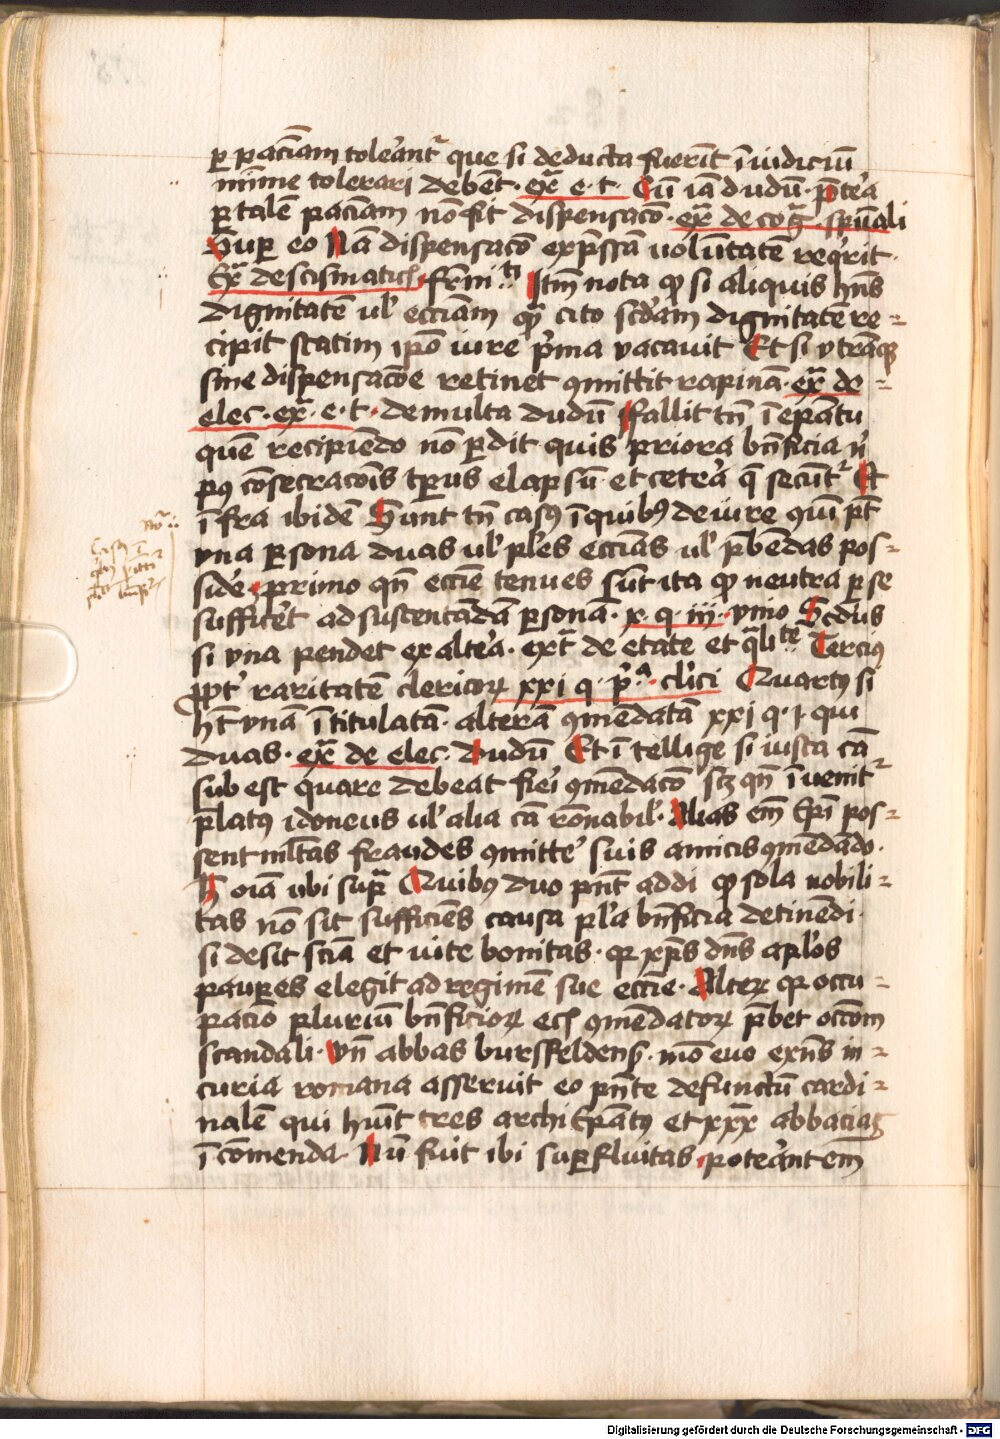 ꝑ pacīam toleˀantˀ que si deducta fuerīt ī iudiciū
mīme tolerari debēt · ex̄ · e · t · Cū iā dudū · p̄teˀa
ꝑ talē pacīam nō fit dispensacō · ex̄ de coḡ · spūali
Super eo Nā dispensacō exp̄ssā uolūtatē reqˀrit ·
Ex̄ de scismaticꝭ · fr̄mi · Itm̄ nota ꝙ si aliquis hn̄s
dignitatē ulˀ eccīam qͣ cito scd̄am dignitatē re-
cipit statim ip̄o iure pˀma vacavit Et si vtrāqꝫ
sine dispensacōe retinet ꝯmittit rapinā · ex̄ de -
elec · ex̄ · e · t · de multa dudū Fallit tn̄ ī ep̄atu
quē recipiēdo nō ꝑdit quis priora bn̄ficia nˀ
pꝰ cōsecracōīs tp̄us elapsū et ceteˀa q̄ secūtˀ Et
īfra ibidē Sunt tn̄ casꝰ ī quibꝰ de iure qui p̄t
vna ꝑsona duas ulˀ plˀes eccīas ulˀ p̄bēdas pos-
sideˀ · primo qn̄ eccīe tenues sūt ita ꝙ neutra ꝑ se
sufficeˀt ad sustentādā ꝑsonā · x · q · iij · vnio Scd̄us
si vna pendet ex alteˀa · ext̄ de etate et qͣliᵗᵉ Tercius
ꝓptˀ raritatē clericoꝝ xxi q · pˀᵃ · clˀici Quartꝰ si
hꝫ vnā ītitulatā · alterā ꝯmēdatā xxi q · i · qui
duas · ex̄ de elec · dudū Et ītellige si iusta cā
subest quare debeat fieˀi ꝯmēdacō scꝫ qn̄ īuenitˀ
p̄latꝰ idoneus ulˀ alia cā rōnabilˀ · Alias em̄ ep̄i pos-
sent mltˀas fraudes ꝯmitteˀ suis amicis ꝯmēdādo ·
H oīa ubi supͣ Quibꝰ duo pn̄t addi ꝙ sola nobili-
tas nō sit sufficiēs causa plˀa bn̄ficia detinēdi
si desit scīa et uite bonitas · qꝛ xp̄s dn̄s aplˀos
pauꝑes elegit ad regimē sue eccīe · Alteꝝ qꝛ occu-
pacō pluriū bn̄ficioꝝ ecꝭ ꝯmēdatoꝝ p̄bet occōem
scandali · Vn̄ abbas bursfeldenꝭ · mō euo exn̄s in -
curia romana asseruit eo pn̄te defunctū cardi-
nalē qui huīt tres archiep̄atꝰ et xxx abbacias
ī cōmenda · Nū fuit ibi suꝑfluitas · poteˀant em̄